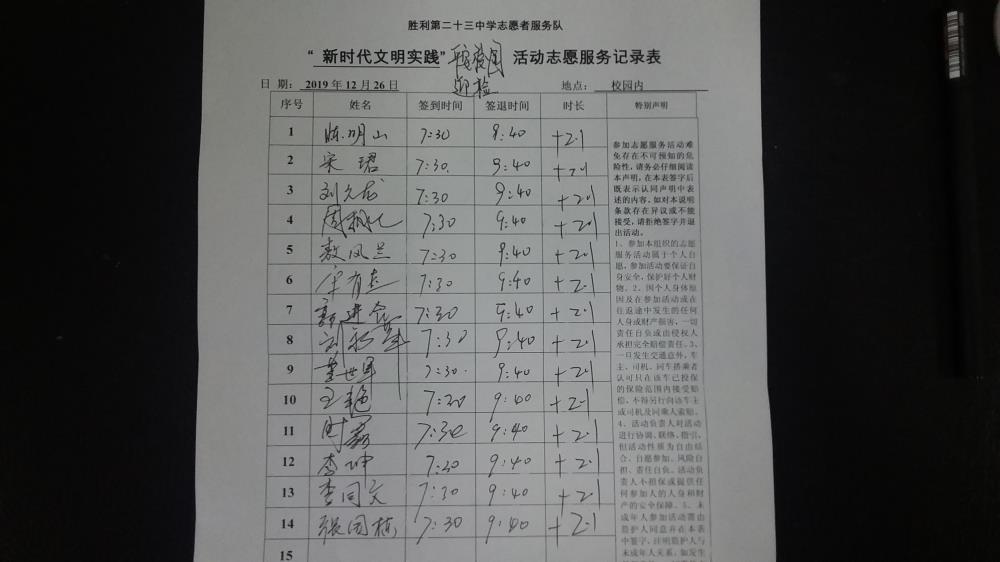 胜利第二十三中学志愿者服务队
“ 新时代文明实践” 平安校园 活动志愿服务记录表
迎检
日 期: 2019 年 12 月 26 日 地点: 校园内
序号 姓名 签到时间 签退时间 时长 特别声明
1 陈明山 7:30 9:40 +2.1
2 宋珺 7:30 9:40 +2.1
3 刘久龙 7:30 9:40 +2.1
4 周 7:30 9:40 +2.1
5 敖凤兰 7:30 9:40 +2.1
6 宋有志 7:30 9:40 +2.1
7 进 7:30 9:40 +2.1
8 刘 军 7:30 9:40 +2.1
9 董世军 7:30 9:40 +2.1
10 王艳 7:30 9:40 +2.1
11 时霞 7:30 9:40 +2.1
12 李坤 7:30 9:40 +2.1
13 李同文 7:30 9:40 +2.1
14 张国栋 7:30 9:40 +2.1
15
参加志愿服务活动难
免存在不可预知的危
险性，请务必仔细阅读
本声明，在本表签字后
既表示认同声明中表
述的内容，如对本说明
条款存在异议或不能
接受，请拒绝签字并退
出活动。
1、参加本组织的志愿
服务活动属于个人自
愿，参加活动要保证自
身安全，保护好个人财
物。2、因个人身体原
因及在参加活动或在
往返途中发生的任何
人身或财产损害，一切
责任自负或由侵权人
承担完全赔偿责任。3、
一旦发生交通意外，车
主、司机、同车搭乘者
认可只在该车已投保
的保险范围内接受赔
偿，不得另行向该车主
或司机及同乘人索赔。
4、活动负责人对活动
进行协调、联络、指引，
但活动性质为自由结
合、自愿参加、风险自
担、责任自负。活动负
责人不担保或提供任
何参加人的人身和财
产的安全保障。5、未
成年人参加活动需由
监护人同意并在本表
中签字，注明监护人与
未成年人关系，如发生